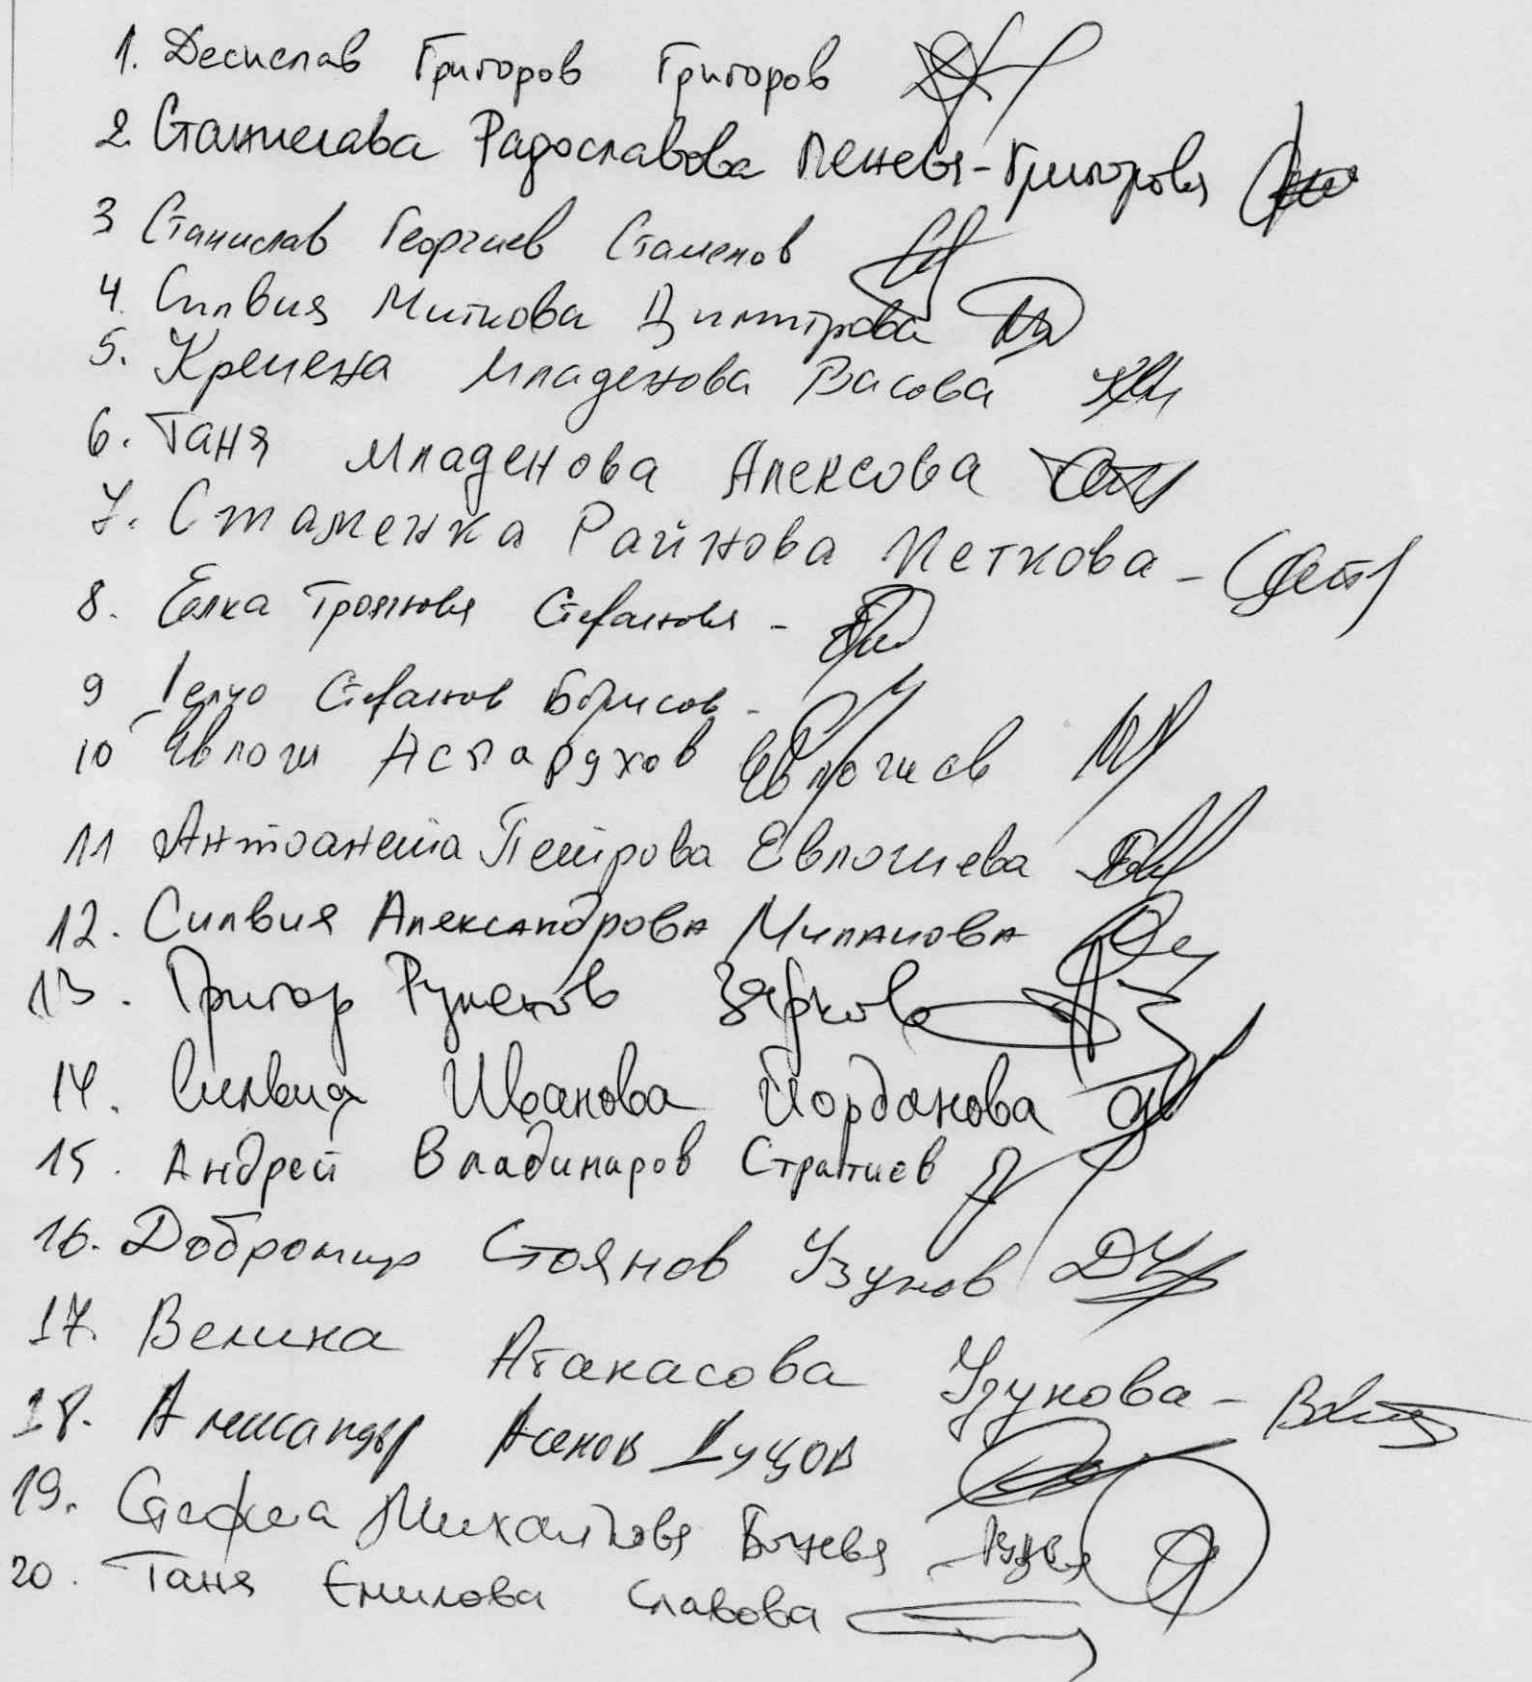 1. Десислав Григоров Григоров
2. Станислава Радославова Пенева-Григорова
3 Станислав Георгиев Стаменов
4. Силвия Миткова Димитрова
5. Кремена Младенова Васова
6. Таня Младенова Алексова
7. Стаменка Райнова Петкова -
8. Елка Троянова Стефанова -
9 Стефанов Борисов -
10 Евлоги Аспарухов Евлогиев
11 Антоанета Петрова Евлогиева
12. Силвия Александрова Миланова
13. Григор Руменов Зярков
14. Силвия Иванова Йорданова
15. Андрей Владимиров Стратиев
16. Добромир Стоянов Узунов
17. Велина Атанасова Узунова -
18. Александър Асенов Луцов
19. Стефка Михайлова
20. Таня Емилова Славова